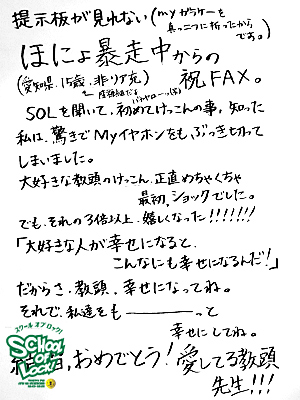 提示板が見れない(myガラケーを
真っ二つに折ったから
です。)
ほにょ暴走中からの
(愛知県・15歳・非リア充)
祝FAX。
SOLを聞いて、初めてけっこんの事、知った
私は、驚きでMyイヤホンをも、ぶっち切って
しまいました。
大好きな教頭のけっこん、正直めちゃくちゃ
最初、ショックでした。
でも、それの3倍以上、嬉しくなった!!!!!!!
「大好きな人が幸せになると、
こんなにも幸せになるんだ!」
だからさ、教頭、幸せになってね。
それで、私達をも―――っと
幸せにしてね。
おめでとう!愛してる教頭
先生!!!
スクール オブ ロック!
SCHOOL OF LOCK!